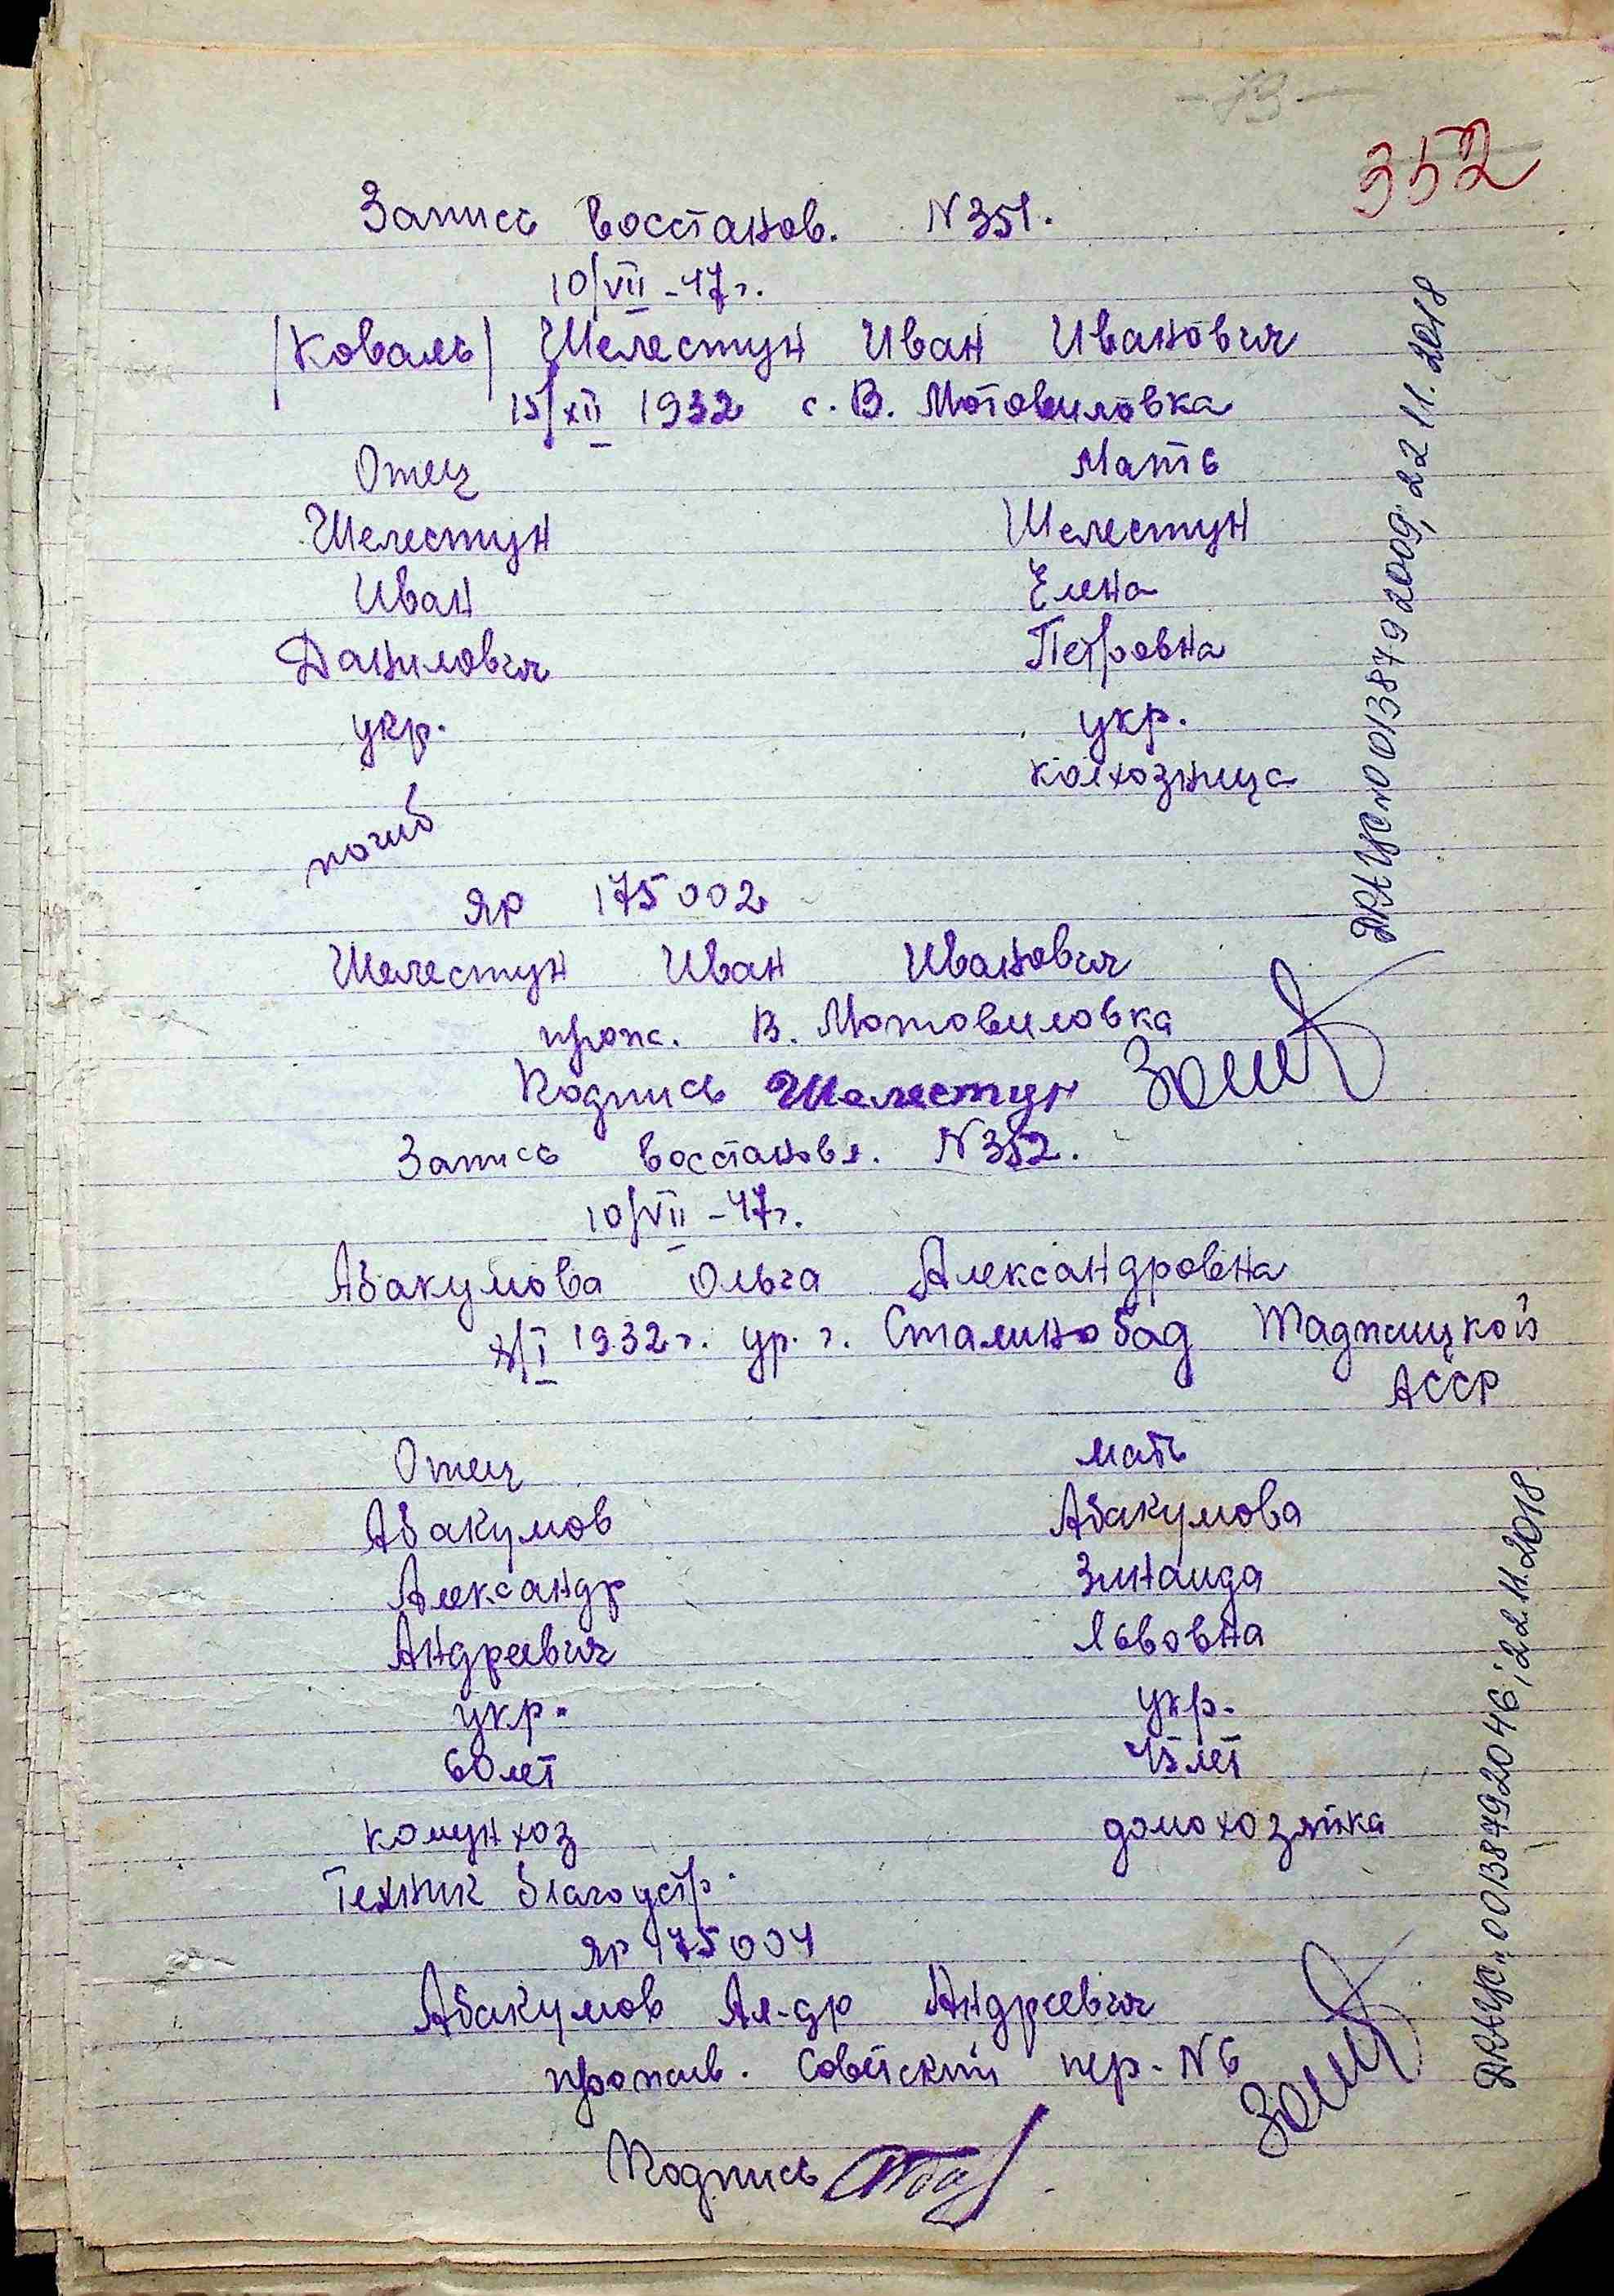 - 73 -
352
Запись восстанов. N 351.
10/VII - 47 г.
/Коваль/ Шелестун Иван Иванович
15/XII 1932 с. В. Мотовиловка
Отец Мать
Шелестун Шелестун
Иван Елена
Данилович Петровна
укр. укр.
колхозница
погиб
ЯР 175002
Шелестун Иван Иванович
прож. В. Мотовиловка
Подпись Шелестун
Запись восстановл. N 352.
10/VII - 47 г.
Абакумова Ольга Александровна
I 1932 г. ур. г. Сталинобад Таджицкой
АССР
Отец мать
Абакумов Абакумова
Александр Зинаида
Андреевич Львовна
укр. укр.
60 лет 45 лет
комунхоз домохозяйка
Техник благоустр.
ЯР 175004
Абакумов Ал-др Андреевич
прожив. Советский пер. N 6
Подпись
ДРАЦС 00138792009; 22.11.2018
ДРАЦС 00138792046; 22.11.2018